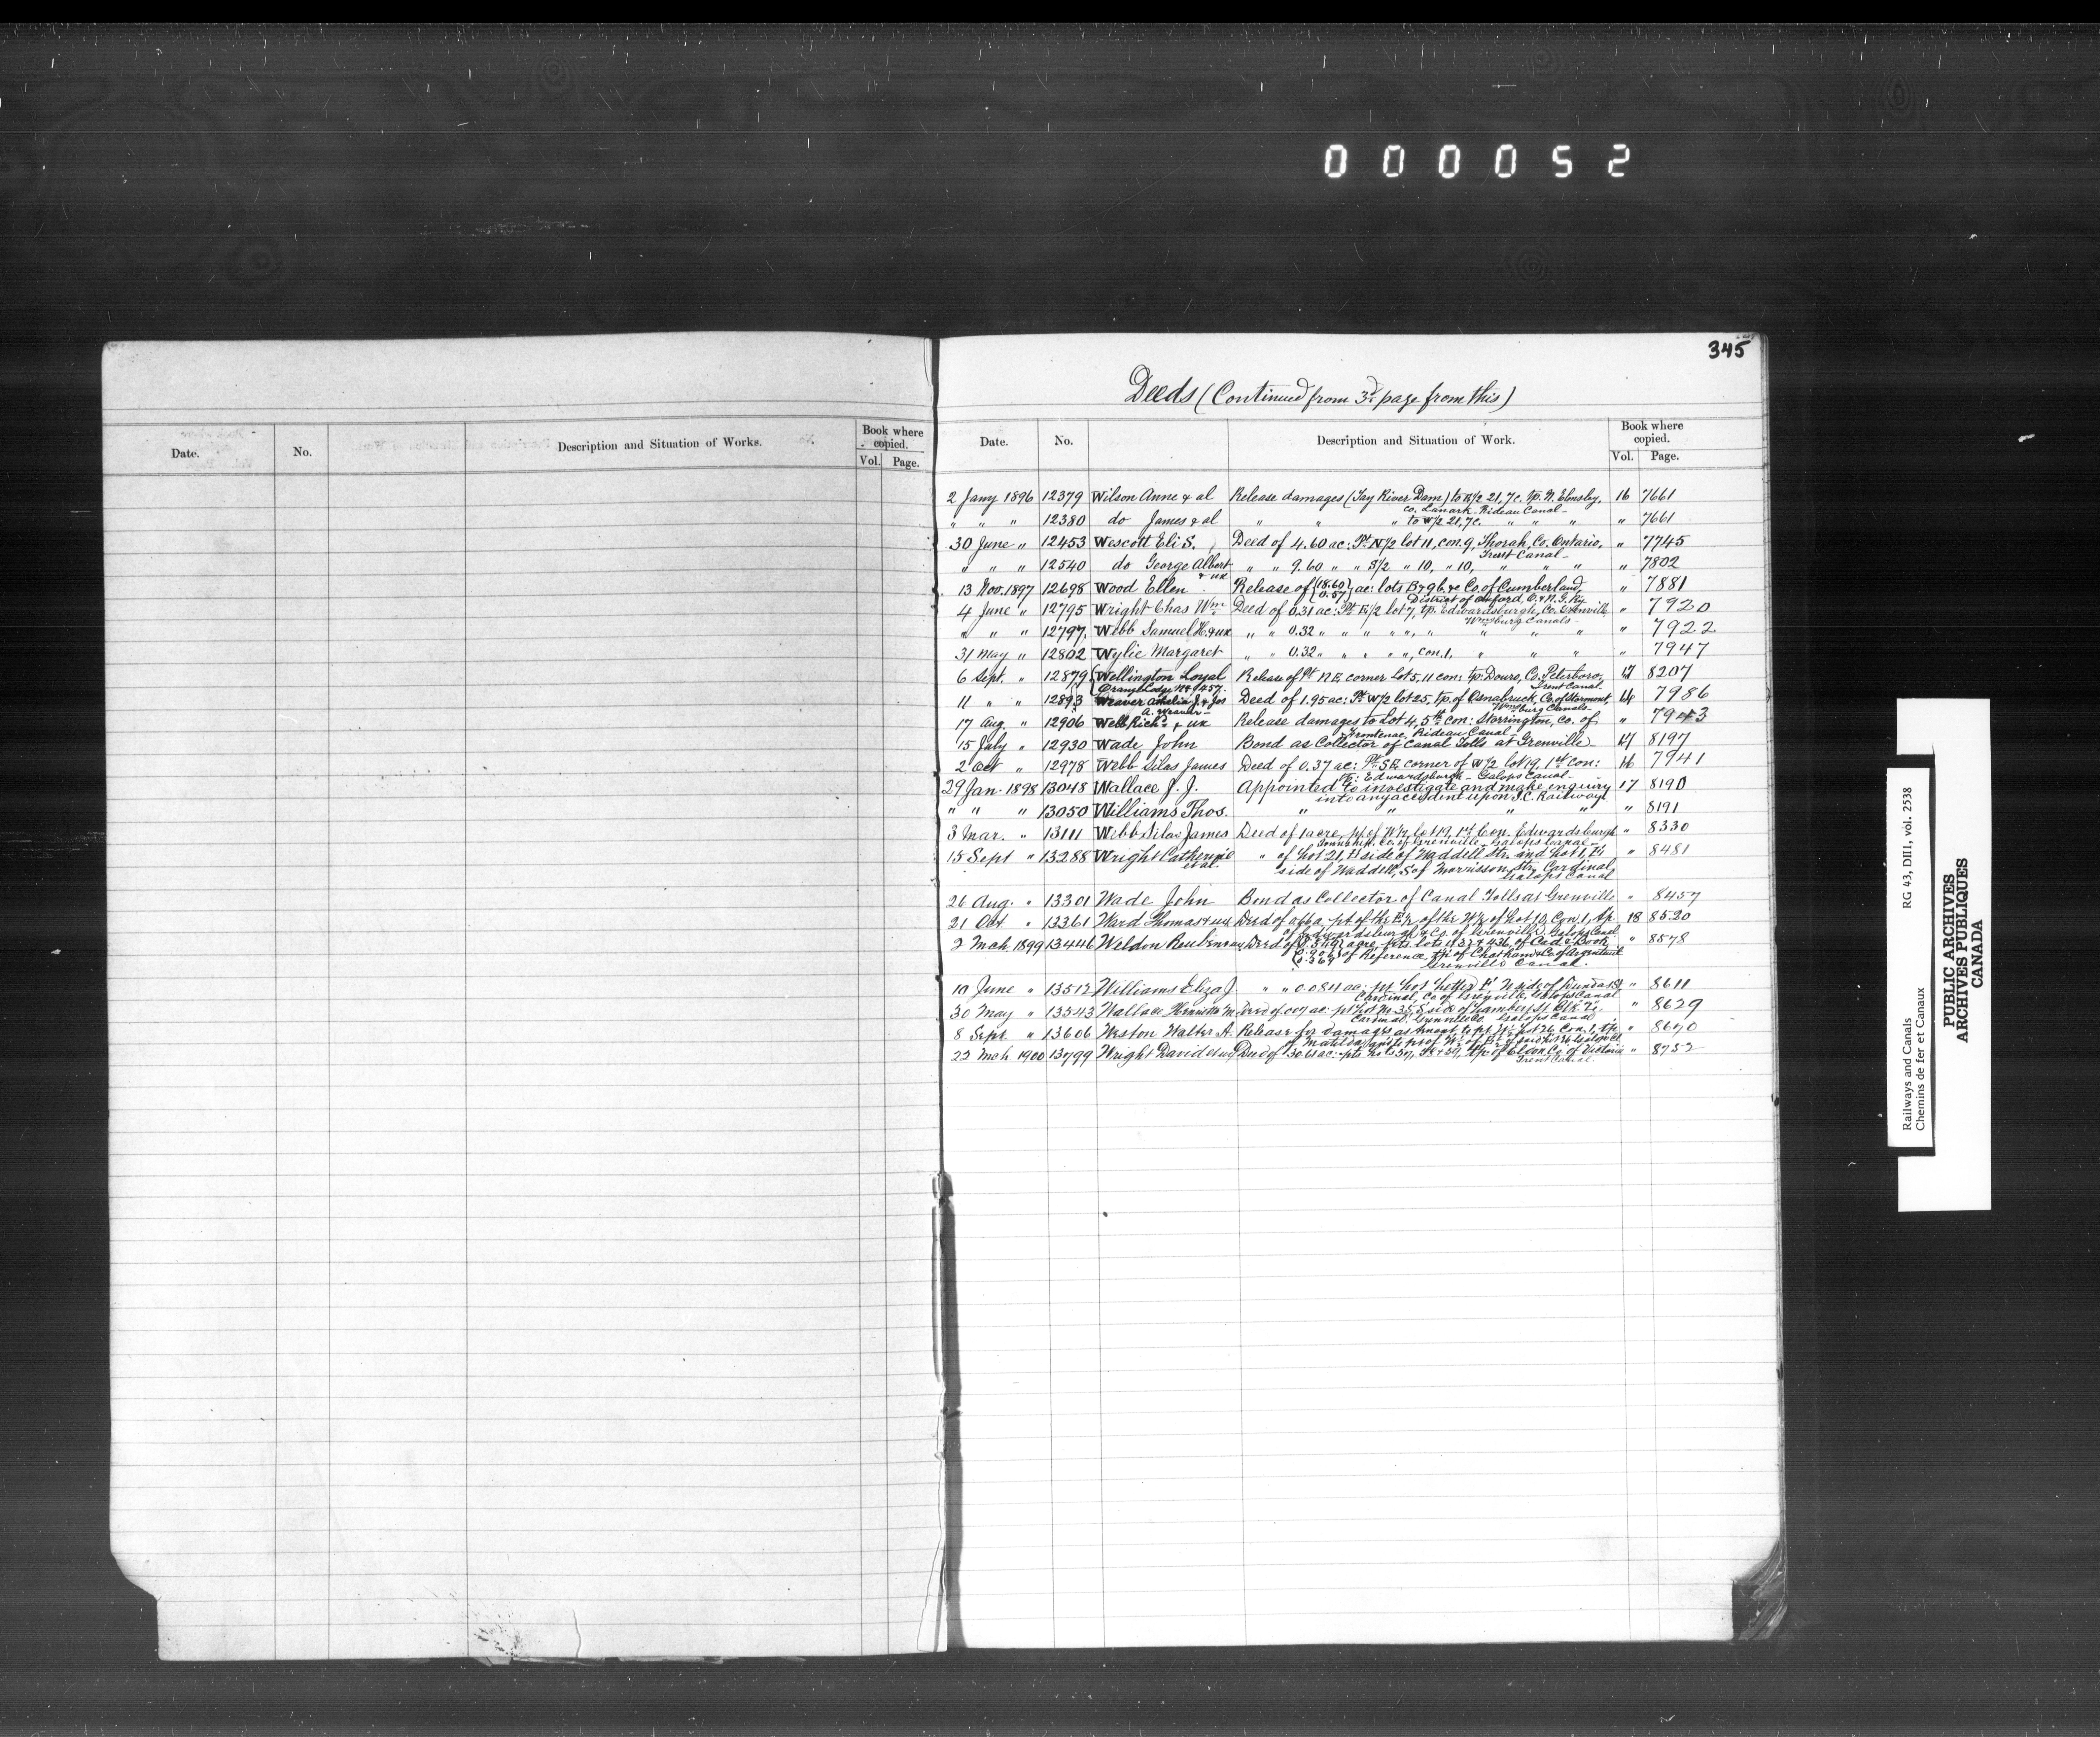 000052
345
Deeds (Continued from 3d page from this)
Date. No. Description and Situation of Works. Book where copied. Vol. Page.
Date. No. Description and Situation of Work. Book where copied. Vol. Page.
2 Jany 1896 12379 Wilson Anne & al Release damages (Tay River Dam) to E1/2 21, 7c. tp. N. Elmsley, 16 7661
co. Lanark - Rideau Canal -
" " " 12380 do James & al " " " to W1/2 21, 7c. " " " " 7661
30 June " 12453 Wescott Eli S. Deed of 4.60 ac: Pt N1/2 lot 11, con. 9, Thorah, Co. Ontario, " 7745
Trent Canal -
" " " 12540 do George Albert " " 9.60 " " S1/2 " 10, " 10, " " " " 7802
& ux
13 Nov. 1897 12698 Wood Ellen Release of {18.60 0.57} ac: lots B & 9b. & Co. of Cumberland, " 7881
District of Oxford, O. & N. G. Ry
4 June " 12795 Wright Chas Wm Deed of 0.31 ac: Pt E1/2 lot 7, tp. Edwardsburgh, Co. Grenville " 7920
Wmsburg Canals -
" " " 12797. Webb Samuel H. & ux " " 0.32 " " " " ", " " " " " 7922
31 May " 12802 Wylie Margaret " " 0.32 " " " " ", con. 1, " " " " 7947
6 Sept. " 12879 {Wellington Loyal Release of Pt N.E. corner Lot 5, 11 con: tp. Douro, Co. Peterboro, 17 8207
Orange Lodge No 457. Trent Canal.
11 " " 12893 Weaver Amelia J. & Jos Deed of 1.95 ac: Pt W1/2 lot 25, tp. of Osnabruck, Co. of Stormont, 16 7986
A. Weaver - Wmsburg Canals -
17 Aug. " 12906 Webb Richd & ux Release damages to Lot 4, 5th con: Storrington, co. of " 7943
Frontenac, Rideau Canal -
15 July " 12930 Wade John Bond as Collector of Canal Tolls at Grenville 17 8197
2 Oct " 12978 Webb Silas James Deed of 0.37 ac: Pt S.E. corner of W1/2 lot 19, 1st con: 16 7941
tp: Edwardsburgh - Galops Canal -
29 Jan. 1898 13048 Wallace J. J. Appointed to investigate and make enquiry 17 8190
into any accident upon I.C. Railway
" " " 13050 Williams Thos. " " " " 8191
3 Mar. " 13111 Webb Silas James Deed of 1 acre, pt of W1/2 lot 19, 1st Con. Edwardsburgh " 8330
Township, Co. of Grenville - Galops Canal -
15 Sept " 13288 Wright Catherine " of Lot 21, E side of Waddell Str. and Lot 1, E " 8481
et al. side of Waddell, S of Morrisson Str. Cardinal
Galops Canal
26 Aug. " 13301 Wade John Bond as Collector of Canal Tolls at Grenville " 8457
21 Oct. " 13361 Ward Thomas & ux Deed of pt of the E1/2 of the W1/2 of Lot 10, Con. 1, tp. 18 8520
of Edwardsburgh & Co. of Grenville, Galops Canal
2 Mch 1899 13446 Weldon Reuben & ux Deed of acre, pts lots & 436, of Cad. Book " 8578
of Reference, tp. of Chatham & Co. of Argenteuil
Grenville Canal.
10 June " 13512 Williams Eliza J. " " 0.084 ac: pt Lot Letter E, N side of Dundas St " 8611
Cardinal, Co of Grenville, Galops Canal
30 May " 13543 Wallace Henrietta M. Deed of ac: pt Lot No 35, S side of Lambert St. Blk " 8629
Cardinal, Grenville Co Galops Canal
8 Sept " 13606 Weston Walter A. Release for damages as tenant to pt W1/2 Lot 26, Con. 1, tp. " 8690
of Matilda,
22 Mch 1900 13799 Wright David & ux Deed of 30.61 ac: pts Lots 57, 58 & 59, tp. of Eldon, Co. of Victoria " 8752
Trent Canal.
Railways and Canals RG 43, DIII, vol. 2538
Chemins de fer et Canaux
PUBLIC ARCHIVES
ARCHIVES PUBLIQUES
CANADA